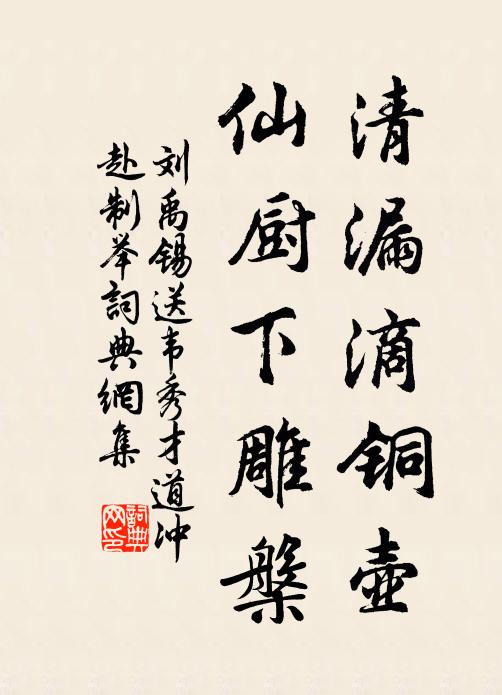 清漏滴铜壶
仙厨下雕槃
刘禹锡送韦秀才道冲
赴制举詞典網集
詞典
网印